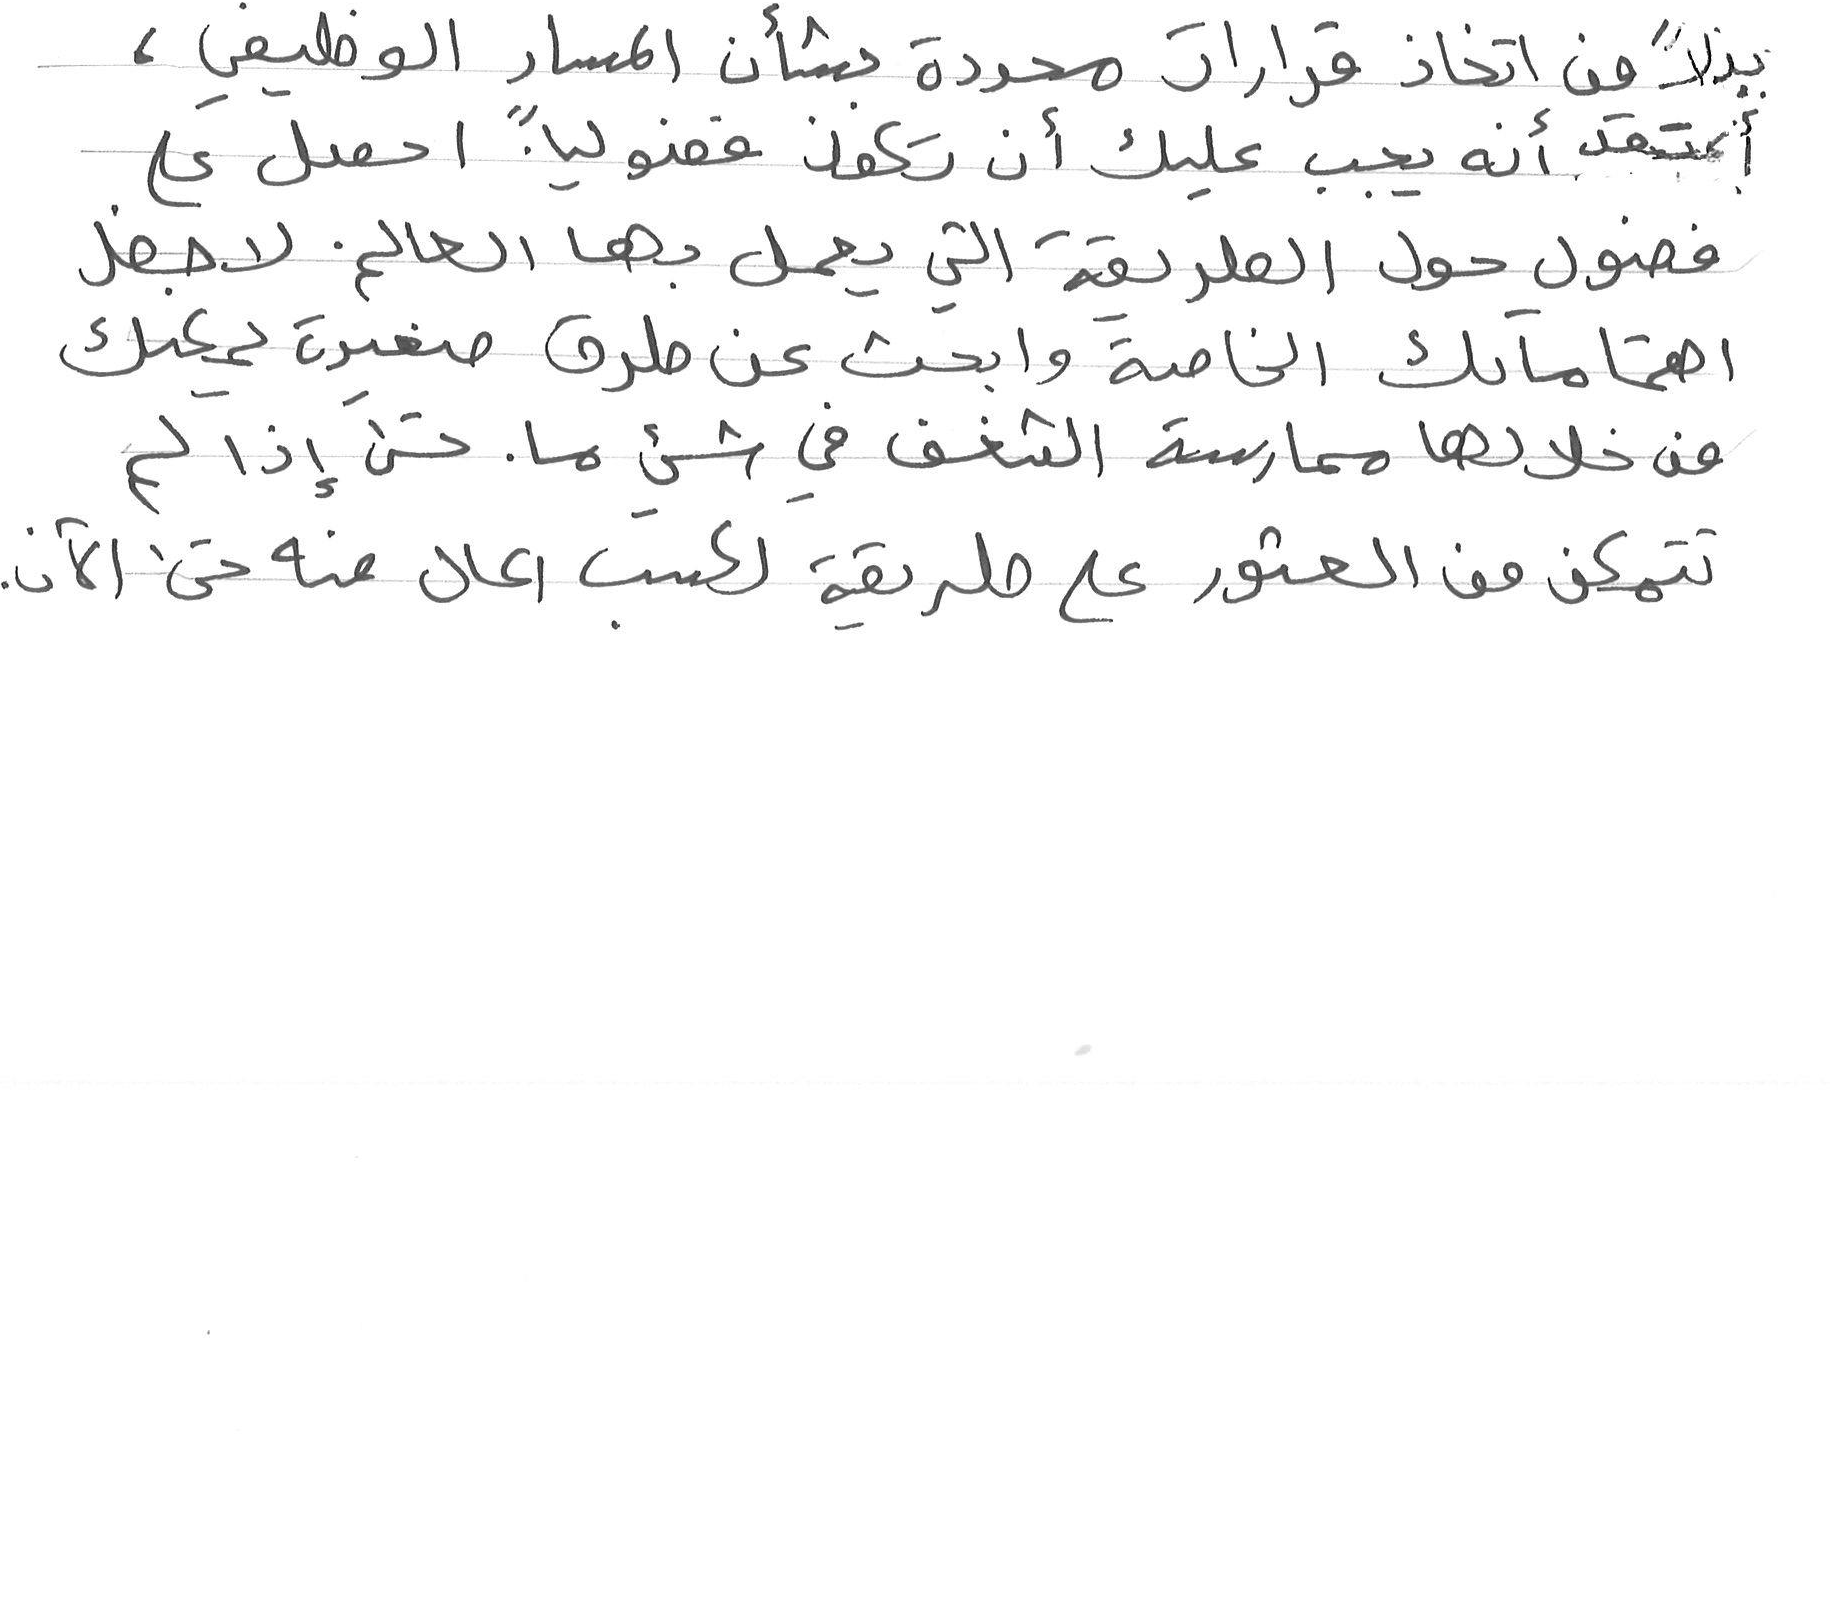 بدلاً من اتخاذ قرارات محددة بشأن المسار الوظيفي ،
أعتقد أنه يجب عليك أن تكون فضولياً. احصل على
فضول حول الطريقة التي يعمل بها العالم. لاحظ
اهتماماتك الخاصة وابحث عن طرق صغيرة يمكنك
من خلالها ممارسة الشغف في شيء ما. حتى إذا لم
تتمكن من العثور على طريقة لكسب المال منه حتى الآن.